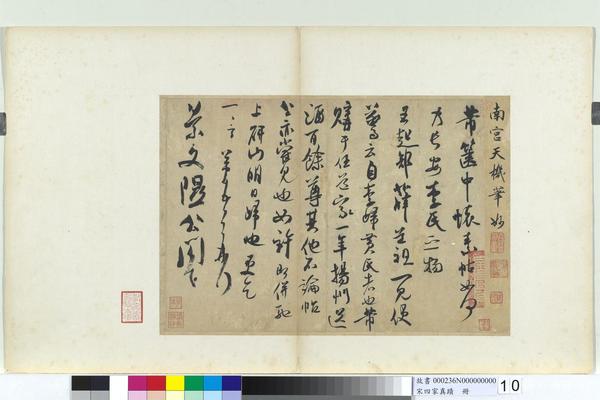 南宮天機筆妙
芾篋中懷素帖如何
乃長安李氏之物
王起部薛道祖一見便
驚云自李歸黃氏者也芾
購于任道家一年揚州送
酒百餘尊其他不論帖
公亦嘗見也如許即併馳
上研山明日歸也更乞
一言芾頓首再拜
景文隰公閣下
故書 000236N000000000
宋四家真蹟 冊
10